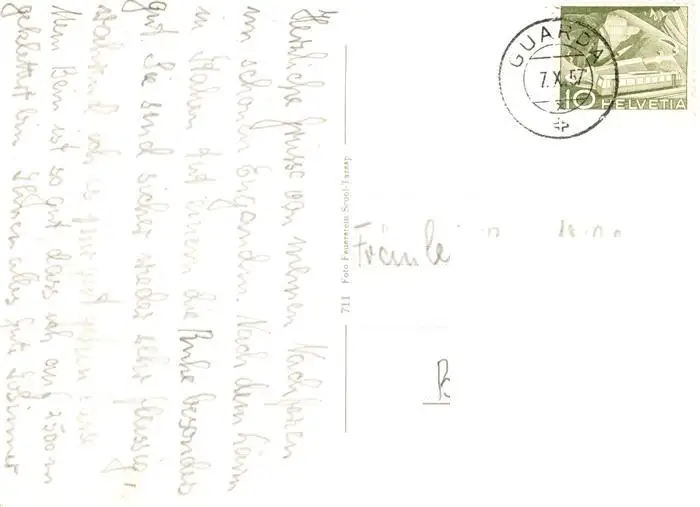 Herzliche Grüsse von meinen Nachferien
im schönen Engandin. Nach dem Lärm
in Italien tut einem die Ruhe besonders
gut. Sie sind sicher wieder sehr fleissig,
während ich es
Mein Bein ist so gut dass ich auf 2500 m
geklettert bin Ihnen alles gute
711 Foto Feuerstein Scuol-Tarasp
GUARDA
7.X.57
10 HELVETIA
Fräule